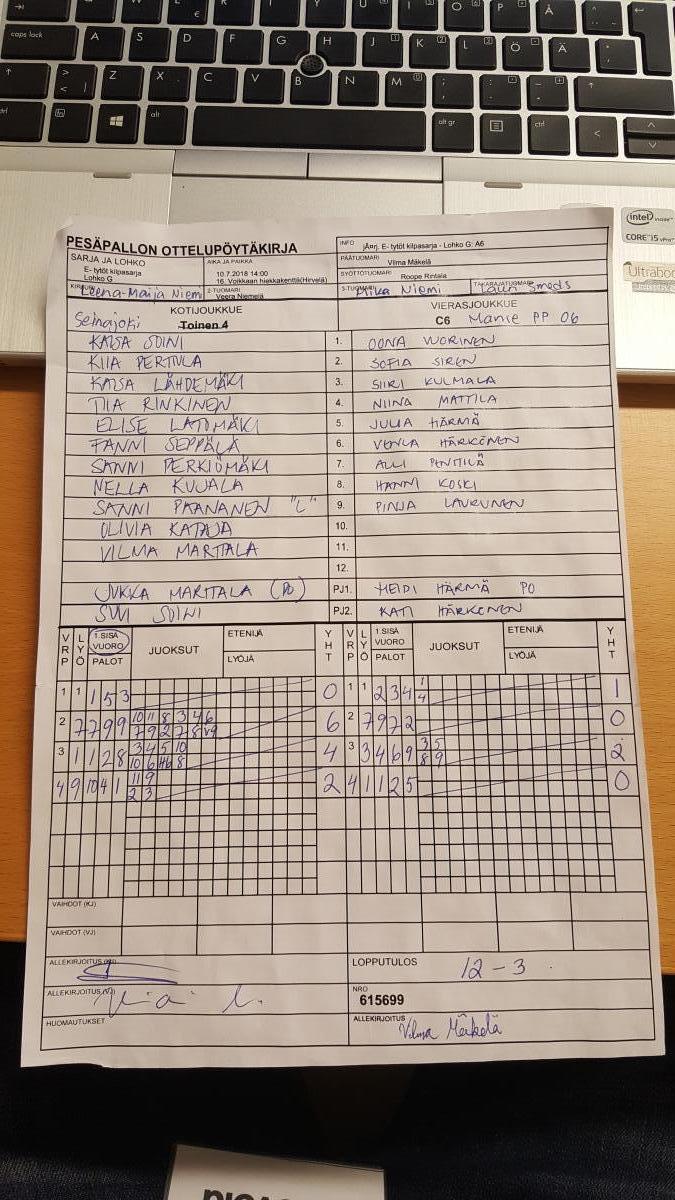 caps lock A S D F G H J K L Ö Ä
Z X C V B N M
alt alt gr ctrl
intel inside
CORE i5 vPro
Ultrabook
PESÄPALLON OTTELUPÖYTÄKIRJA
INFO jÄrrj. E- tytöt kilpasarja - Lohko G: A6
SARJA JA LOHKO E- tytöt kilpasarja Lohko G
AIKA JA PAIKKA 10.7.2018 14:00 16. Voikkaan hiekkakenttä(Hirvelä)
PÄÄTUOMARI Vilma Mäkelä
SYÖTTÖTUOMARI Roope Rintala
KIRJURI Leena-Maija Niemi 2-TUOMARI Veera Niemelä 3-TUOMARI Mika Niemi TAKARAJATUOMARI Lauri Smeds
KOTIJOUKKUE VIERASJOUKKUE
Seinäjoki Toinen 4 C6 Manse PP 06
KAISA SOINI 1. OONA VUORINEN
KIIA PERTTULA 2. SOFIA SIREN
KAISA LÄHDEMÄKI 3. SIIRI KULMALA
TIIA RINKINEN 4. NIINA MATTILA
ELISE LATOMÄKI 5. JULIA HÄRMÄ
FANNI SEPPÄLÄ 6. VENLA HÄRKÖNEN
SANNI PERKIÖMÄKI 7. ALLI PENTTILÄ
NELLA KUJALA 8. HANNI KOSKI
SANNI PAANANEN "L" 9. PINJA LAURUNEN
OLIVIA KATAJA 10.
VILMA MARTTALA 11.
12.
JUKKA MARTTALA (PO) PJ1. HEIDI HÄRMÄ PO
SUVI SOINI PJ2. KATI HÄRKÖNEN
VRP LYÖ 1.SISÄ VUORO PALOT JUOKSUT ETENIJÄ LYÖJÄ YHT VRP LYÖ 1.SISÄ VUORO PALOT JUOKSUT ETENIJÄ LYÖJÄ YHT
1 1 1 5 3 0 1 1 2 3 4 1 4 1
2 7 7 9 9 10 11 8 3 4 6 6 2 7 9 7 2 0
7 9 2 7 8
3 1 1 2 8 3 4 5 10 4 3 3 4 6 9 3 5 2
10 6 8 8 9
4 9 10 4 1 11 9 2 4 1 1 2 5 0
2 3
VAIHDOT (KJ)
VAIHDOT (VJ)
ALLEKIRJOITUS (KJ) LOPPUTULOS 12 - 3
ALLEKIRJOITUS (VJ) NRO 615699
HUOMAUTUKSET ALLEKIRJOITUS Vilma Mäkelä